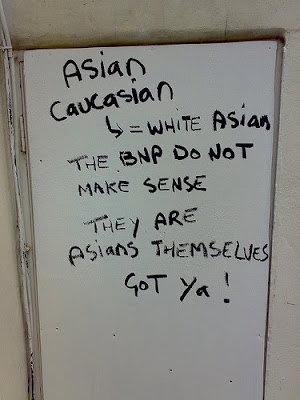 Asian
Caucasian
↳ = WHITE Asian
THE BNP DO NOT
MAKE SENSE
THEY ARE
Asians THEMSELVES
GoT Ya!